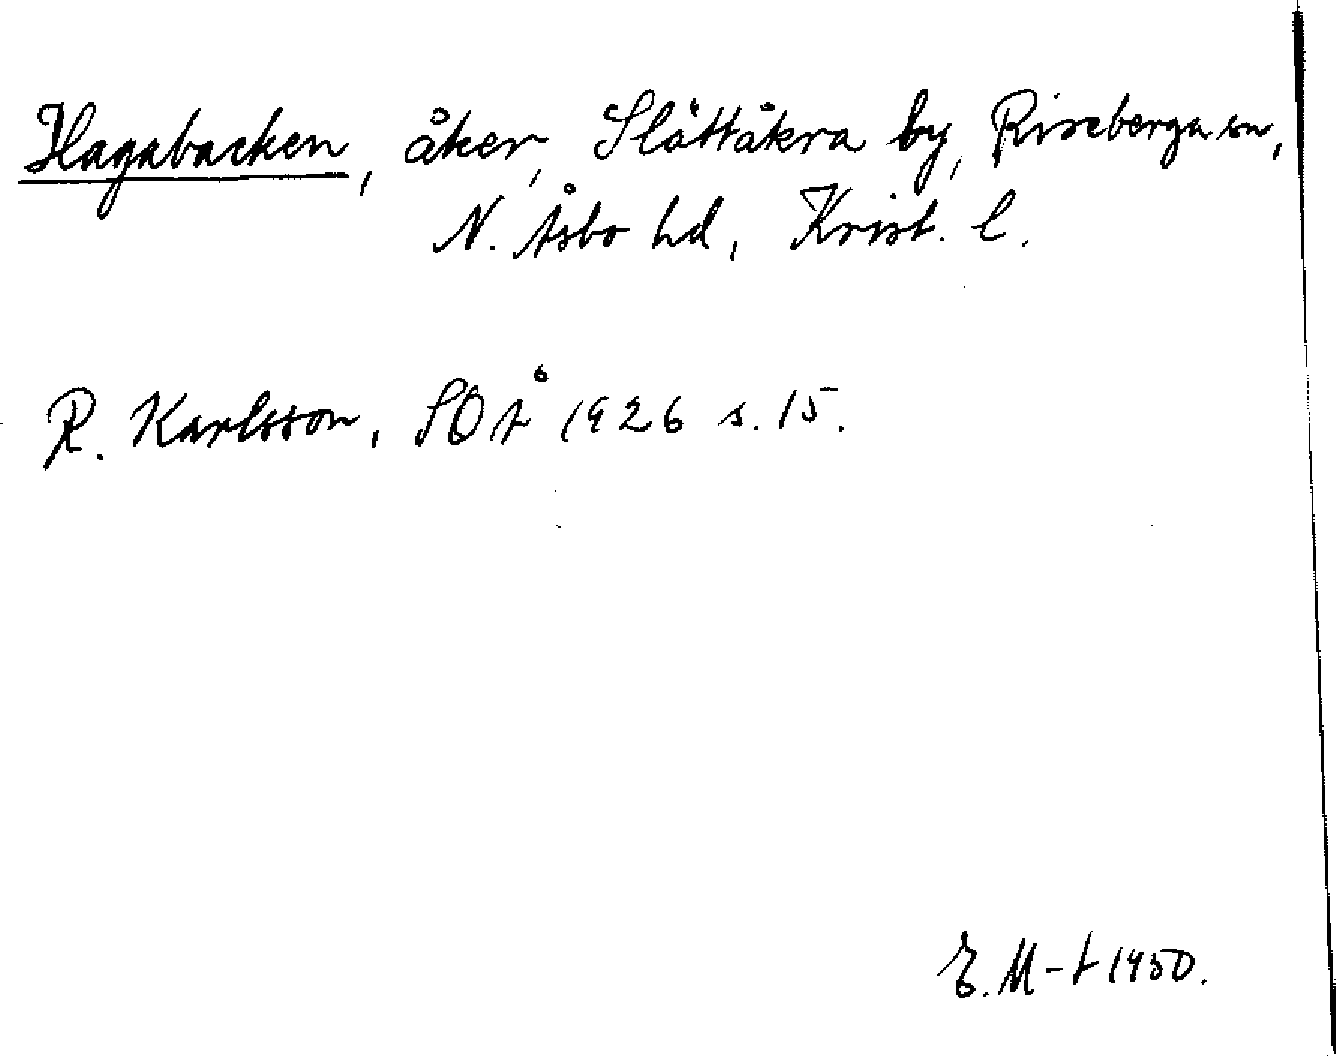 Hagabacken, åker, Slättåkra by, Riseberga sn,
N. Åsbo hd, Krist. l.
R. Karlsson, SOÅ 1926 s. 15.
E. M-t 1950.